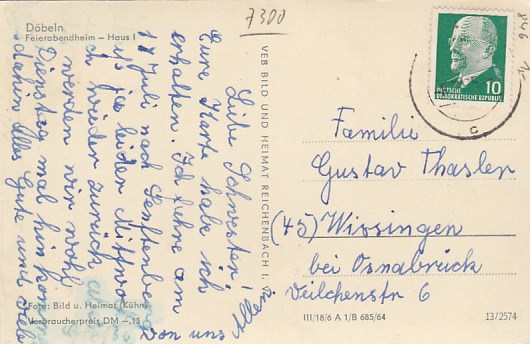 7300
Döbeln
Feierabendheim – Haus I
Liebe Schwester!
Eure Karte habe ich
erhalten. Ich fahre am
17 Juli nach Senftenberg
leider Mittwo
ch wieder zurück
werden wir wohl
Dienstag mal hin kom
dahin Alles Gute und viele
von uns Allen
Foto: Bild u. Heimat (Kühn)
Verbraucherpreis DM –,15
VEB BILD UND HEIMAT REICHENBACH I. V.
DEUTSCHE
DEMOKRATISCHE REPUBLIK
10
Familie
Gustav Thasler
(45) Wissingen
bei Osnabrück
Veilchenstr 6
III/18/6 A 1/B 685/64
13/2574